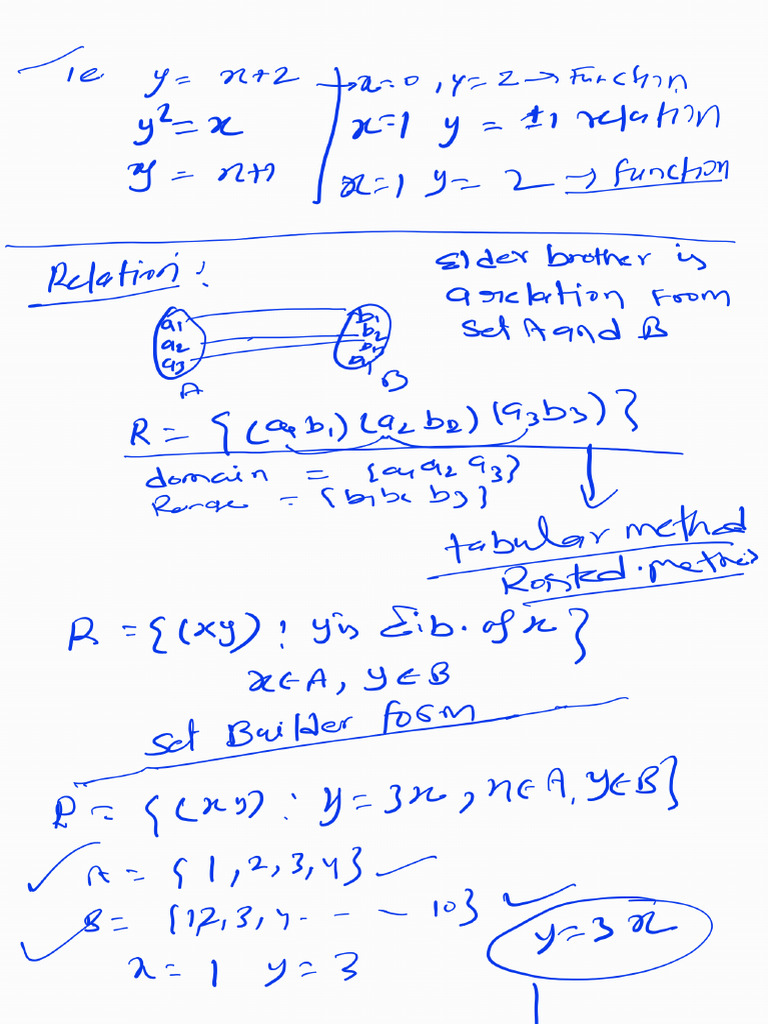 ie y = x+2 → x=0, y=2 → Function
y² = x x=1 y = ±1 relation
y = x+1 x=1 y= 2 → function
Relation:
Elder brother is
a relation From
Set A and B
a1 b1
a2 b2
a3
A B
R = {(a1 b1) (a2 b2) (a3 b3)}
domain = {a1 a2 a3}
Range = {b1 b2 b3}
tabular method
R = {(xy) : y is Eib. of x}
x∈A, y∈B
Set Builder form
R = {(xy) : y = 3x, x∈A, y∈B}
A = {1, 2, 3, 4}
B = {12, 3, 4 - - - 10}
y=3x
x = 1 y = 3